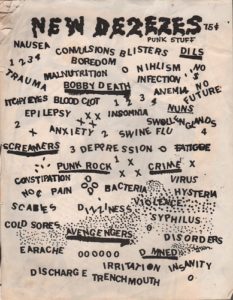 NEW DEZEZES 75¢
PUNK STUFF
NAUSEA CONVULSIONS BLISTERS DILS
1 2 3 4 BOREDOM
TRAUMA MALNUTRITION O NIHLISM NO
BOBBY DEATH INFECTION $
ITCHY EYES BLOOD CLOT 1 2 3 4 ANEMIA NO FUTURE
EPILEPSY X X INSOMNIA NUNS
2 X ANXIETY 2 SWINE FLU SWOLLEN GLANDS
4
SCREAMERS 3 DEPRESSION O FATIGUE
PUNK ROCK 1 X CRIME X
CONSTIPATION VIRUS
NO € PAIN BACTERIA HYSTERIA
SCABIES DIZZINESS VIOLENCE
SYPHILUS
COLD SORES AVENGENGERS DISORDERS
EARACHE OOOOOO D MNED
IRRITATION INSANITY
DISCHARGE TRENCHMOUTH O